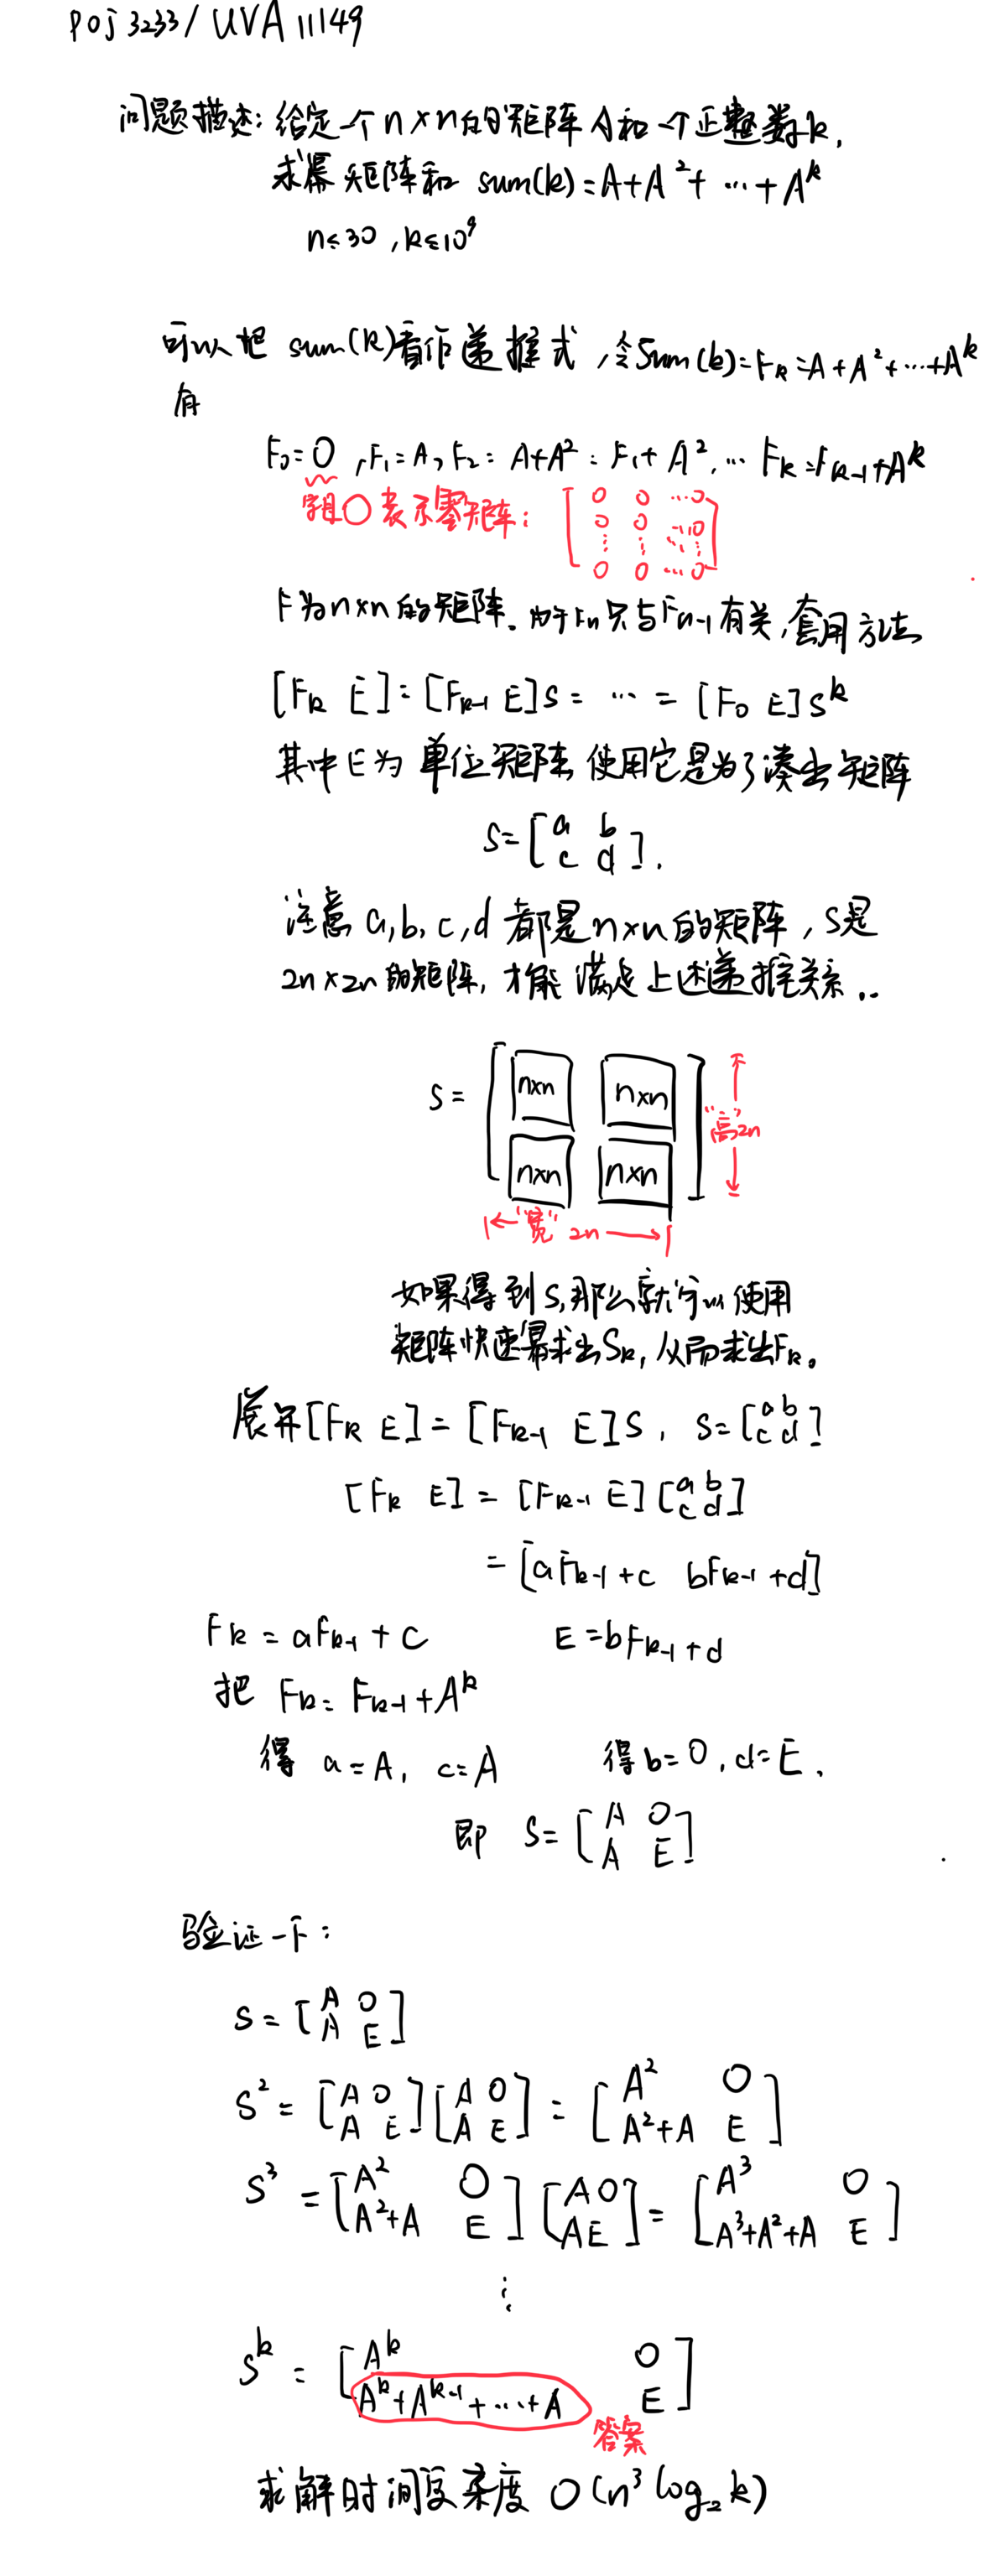 POJ 3233 / UVA 11149
问题描述: 给定一个 n×n的矩阵 A和一个正整数k,
求幂矩阵和 sum(k)=A+A²+…+A^k
n≤30 , k≤10⁹
可以把 sum(k)看作递推式 ,令Sum(k)=F_k=A+A²+…+A^k
有
F₀=O ,F₁=A, F₂= A+A²=F₁+A²,… F_k=F_{k-1}+A^k
字母O表示零矩阵:
0 0 …0
0 0 …0
⋮ ⋮ ⋱ ⋮
0 0 …0
F为n×n的矩阵. 由于F_n只与F_{n-1}有关,套用方法
[F_k E]=[F_{k-1} E]S= … = [F₀ E]S^k
其中E为单位矩阵 使用它是为了凑出矩阵
S=[a b
c d].
注意 a,b,c,d 都是n×n的矩阵 , S是
2n×2n的矩阵, 才能满足上述递推关系..
S=
n×n n×n
n×n n×n
"高"2n
"宽" 2n
如果得到S,那么就可以使用
矩阵快速幂求出S_k, 从而求出F_k。
展开[F_k E]=[F_{k-1} E]S , S=[a b
c d]
[F_k E] = [F_{k-1} E][a b
c d]
= [aF_{k-1}+c bF_{k-1}+d]
F_k = aF_{k-1} + c E=bF_{k-1}+d
把 F_k= F_{k-1}+A^k
得 a=A, c=A 得b=0, d=E,
即 S=[A O
A E]
验证一下:
S=[A O
A E]
S² = [A O
A E][A O
A E] = [A² O
A²+A E]
S³ = [A² O
A²+A E][A O
A E] = [A³ O
A³+A²+A E]
⋮
S^k = [A^k O
A^k+A^{k-1}+…+A E]
答案
求解时间复杂度 O(n³log₂k)